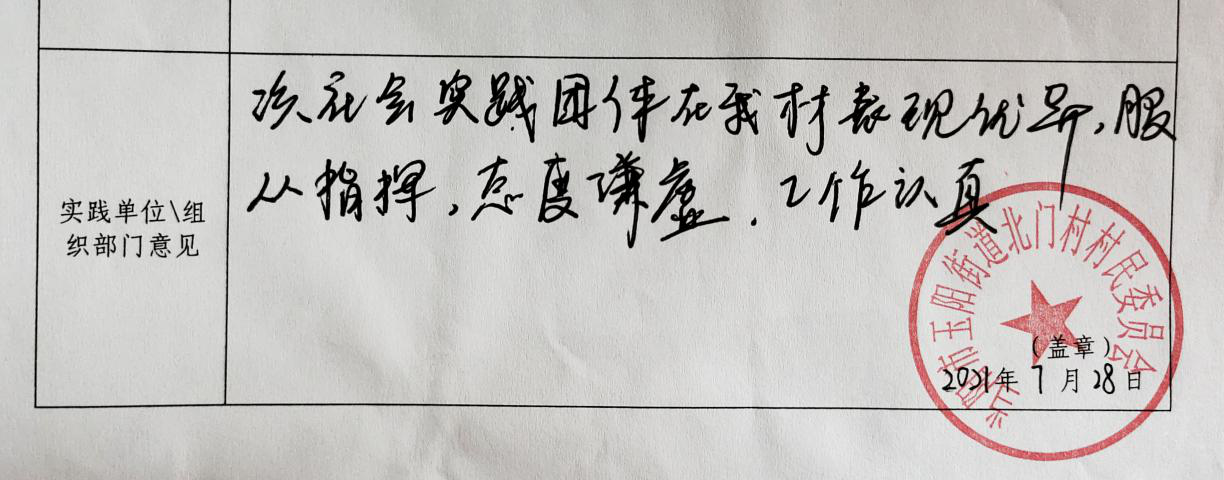 实践单位\组
织部门意见
次社会实践团体在我村表现优异,服
从指挥,态度谦虚,工作认真
当阳市玉阳街道北门村村民委员会
(盖章)
2021年7月28日